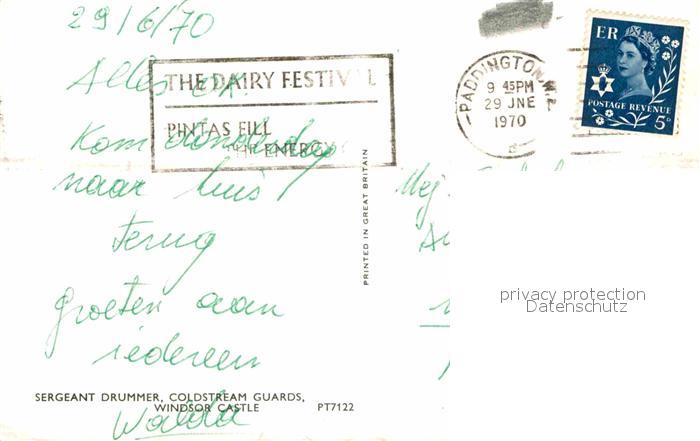 29/6/70
Alles ok.
Kom donderdag
naar huis
terug
groeten aan
iedereen
THE DAIRY FESTIVAL
PINTAS FILL
ENERGY
PADDINGTON W.2
9 45PM
29 JNE
1970
ER
POSTAGE REVENUE
5D
PRINTED IN GREAT BRITAIN
Mej.
privacy protection
Datenschutz
SERGEANT DRUMMER, COLDSTREAM GUARDS,
WINDSOR CASTLE PT7122